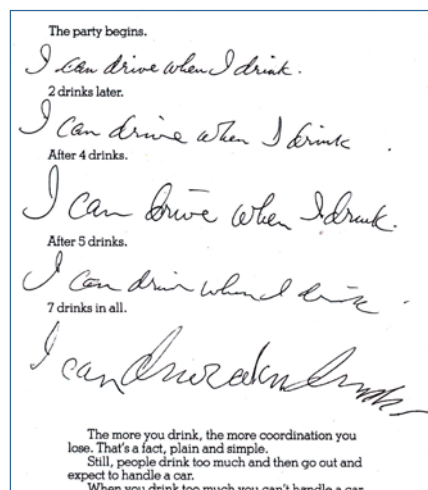 The party begins.
I can drive when I drink.
2 drinks later.
I can drive when I drink.
After 4 drinks.
I can drive when I drink.
After 5 drinks.
I can driv when I drink.
7 drinks in all.
I can
The more you drink, the more coordination you
lose. That's a fact, plain and simple.
Still, people drink too much and then go out and
expect to handle a car.
When you drink too much you can't handle a car.